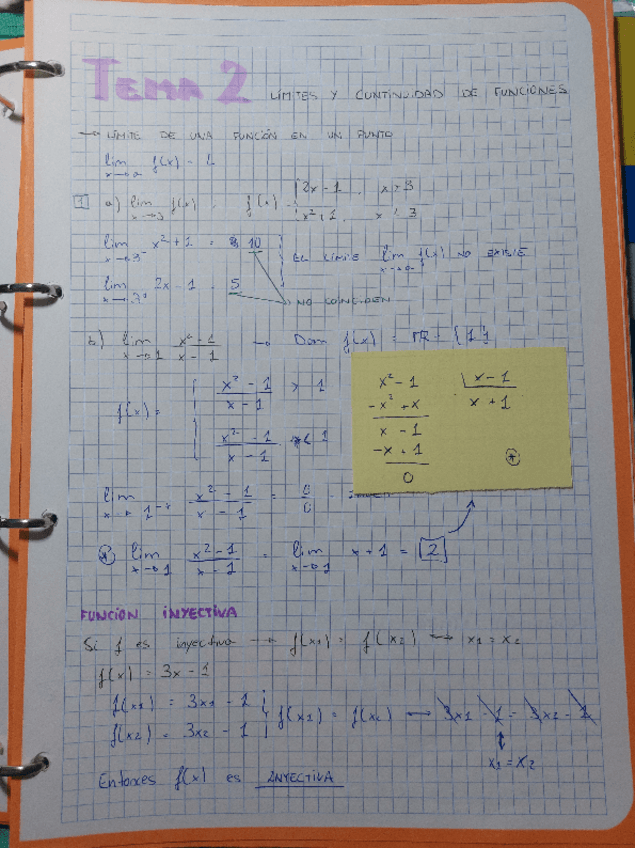 TEMA 2 LÍMITES Y CONTINUIDAD DE FUNCIONES
→ LÍMITE DE UNA FUNCIÓN EN UN PUNTO
lim x→a f(x) = L
1 a) lim x→3 f(x) f(x) { 2x - 1 x > 3
x² + 1 x < 3
lim x→3⁻ x² + 1 = 10
EL LÍMITE lim f(x) NO EXISTE
lim x→3⁺ 2x - 1 = 5
NO COINCIDEN
b) lim x→1 x² - 1 / x - 1 → Dom f(x) = ℝ - {1}
f(x) = { x² - 1 / x - 1 > 1
x² - 1 / x - 1 x < 1
x² - 1 | x - 1
-x² + x x + 1
x - 1
-x + 1
0
*
lim x→1⁺ x² - 1 / x - 1 = 0 / 0
* lim x→1 x² - 1 / x - 1 = lim x→1 x + 1 = 2
FUNCIÓN INYECTIVA
Si f es inyectiva → f(x1) = f(x2) → x1 = x2
f(x) = 3x - 1
f(x1) = 3x1 - 1
f(x1) = f(x2) ↔ 3x1 - 1 = 3x2 - 1
f(x2) = 3x2 - 1
x1 = x2
Entonces f(x) es INYECTIVA